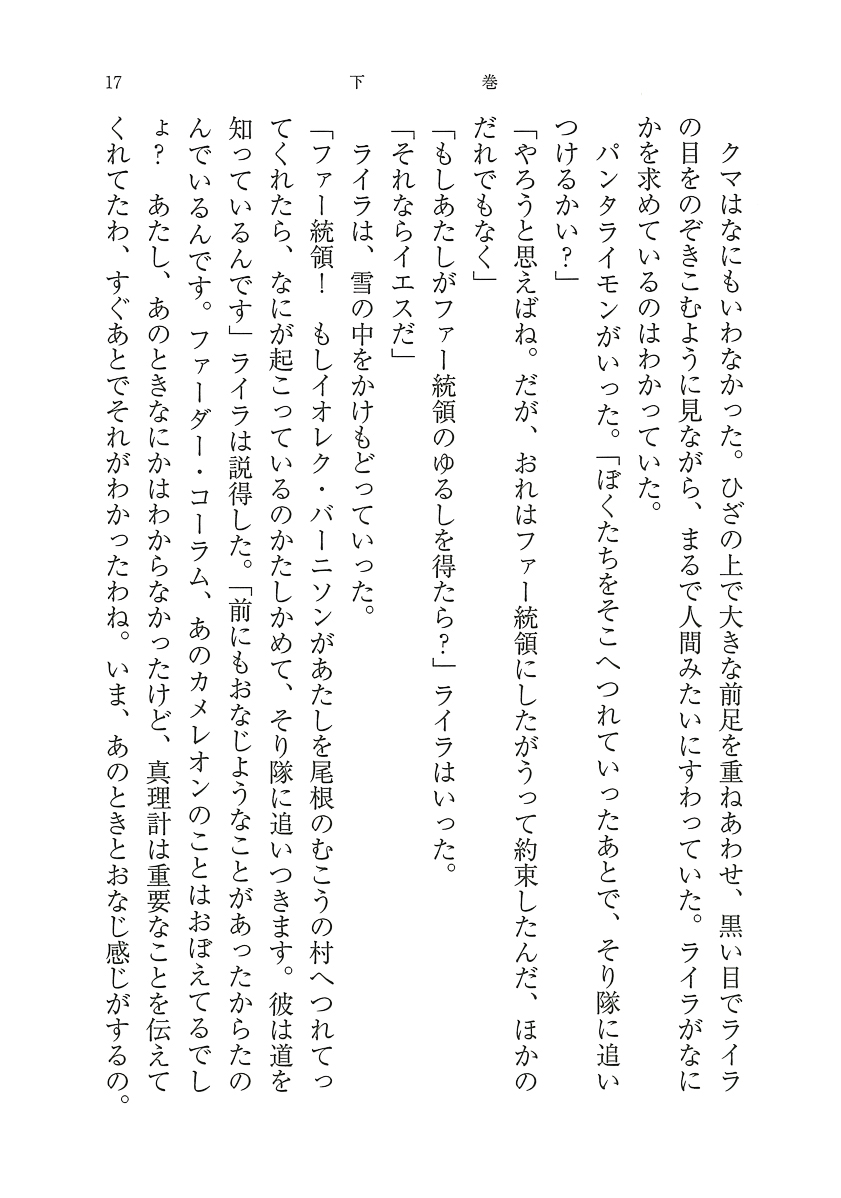 17
下巻
　クマはなにもいわなかった。ひざの上で大きな前足を重ねあわせ、黒い目でライラ
の目をのぞきこむように見ながら、まるで人間みたいにすわっていた。ライラがなに
かを求めているのはわかっていた。
　パンタライモンがいった。「ぼくたちをそこへつれていったあとで、そり隊に追い
つけるかい？」
「やろうと思えばね。だが、おれはファー統領にしたがうって約束したんだ、ほかの
だれでもなく」
「もしあたしがファー統領のゆるしを得たら？」ライラはいった。
「それならイエスだ」
　ライラは、雪の中をかけもどっていった。
「ファー統領！　もしイオレク・バーニソンがあたしを尾根のむこうの村へつれてっ
てくれたら、なにが起こっているのかたしかめて、そり隊に追いつきます。彼は道を
知っているんです」ライラは説得した。「前にもおなじようなことがあったからたの
んでいるんです。ファーダー・コーラム、あのカメレオンのことはおぼえてるでし
ょ？　あたし、あのときなにかはわからなかったけど、真理計は重要なことを伝えて
くれてたわ、すぐあとでそれがわかったわね。いま、あのときとおなじ感じがするの。